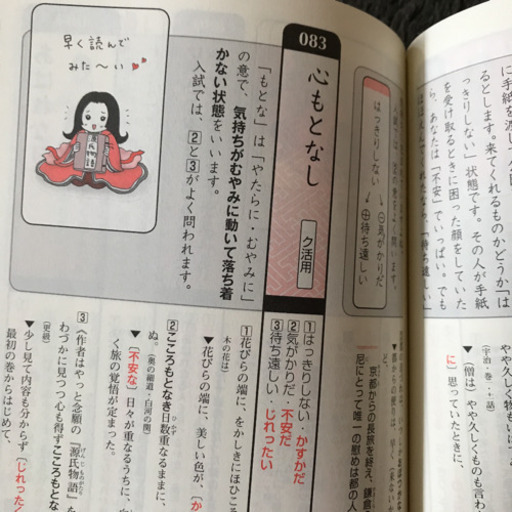 に手紙を渡し
るとします。来てくれるものかどうか「は
っきりしない」状態です。その人が手紙
を受け取るときに困った顔をしていた
ら、あなたは「不安」でいっぱい。でも
「待ち遠しい」
(宇治・巻一・一話)
▼(僧は)やや久しくものも言わ
に]思っていたときに、
はっきりしない
⊖気がかりだ
⊕待ち遠しい
京都からの長旅を終え、鎌倉
尼にとって唯一の慰めは都の人
083
心もとなし
ク活用
1はっきりしない・かすかだ
2気がかりだ 不安だ
3待ち遠しい じれったい
「もとな」は「やたらに・むやみに」
の意で、気持ちがむやみに動いて落ち着
かない状態をいいます。
入試では、2と3がよく問われます。
早く読んで
みた〜い
源氏物語
1花びらの端に、をかしきにほひこ
木の花は)
▼花びらの端に、美しい色が、[か
2こころもとなき日数重なるままに、
ぬ。(奥の細道・白河の関)
▼[不安な]日々が重なるうちに、白
く旅の覚悟が定まった。
3《作者はやっと念願の『源氏物語』を
わづかに見つつ心も得ずこころもとな
(更級)
▼少し見て内容も分からず[じれった
最初の巻からはじめて、